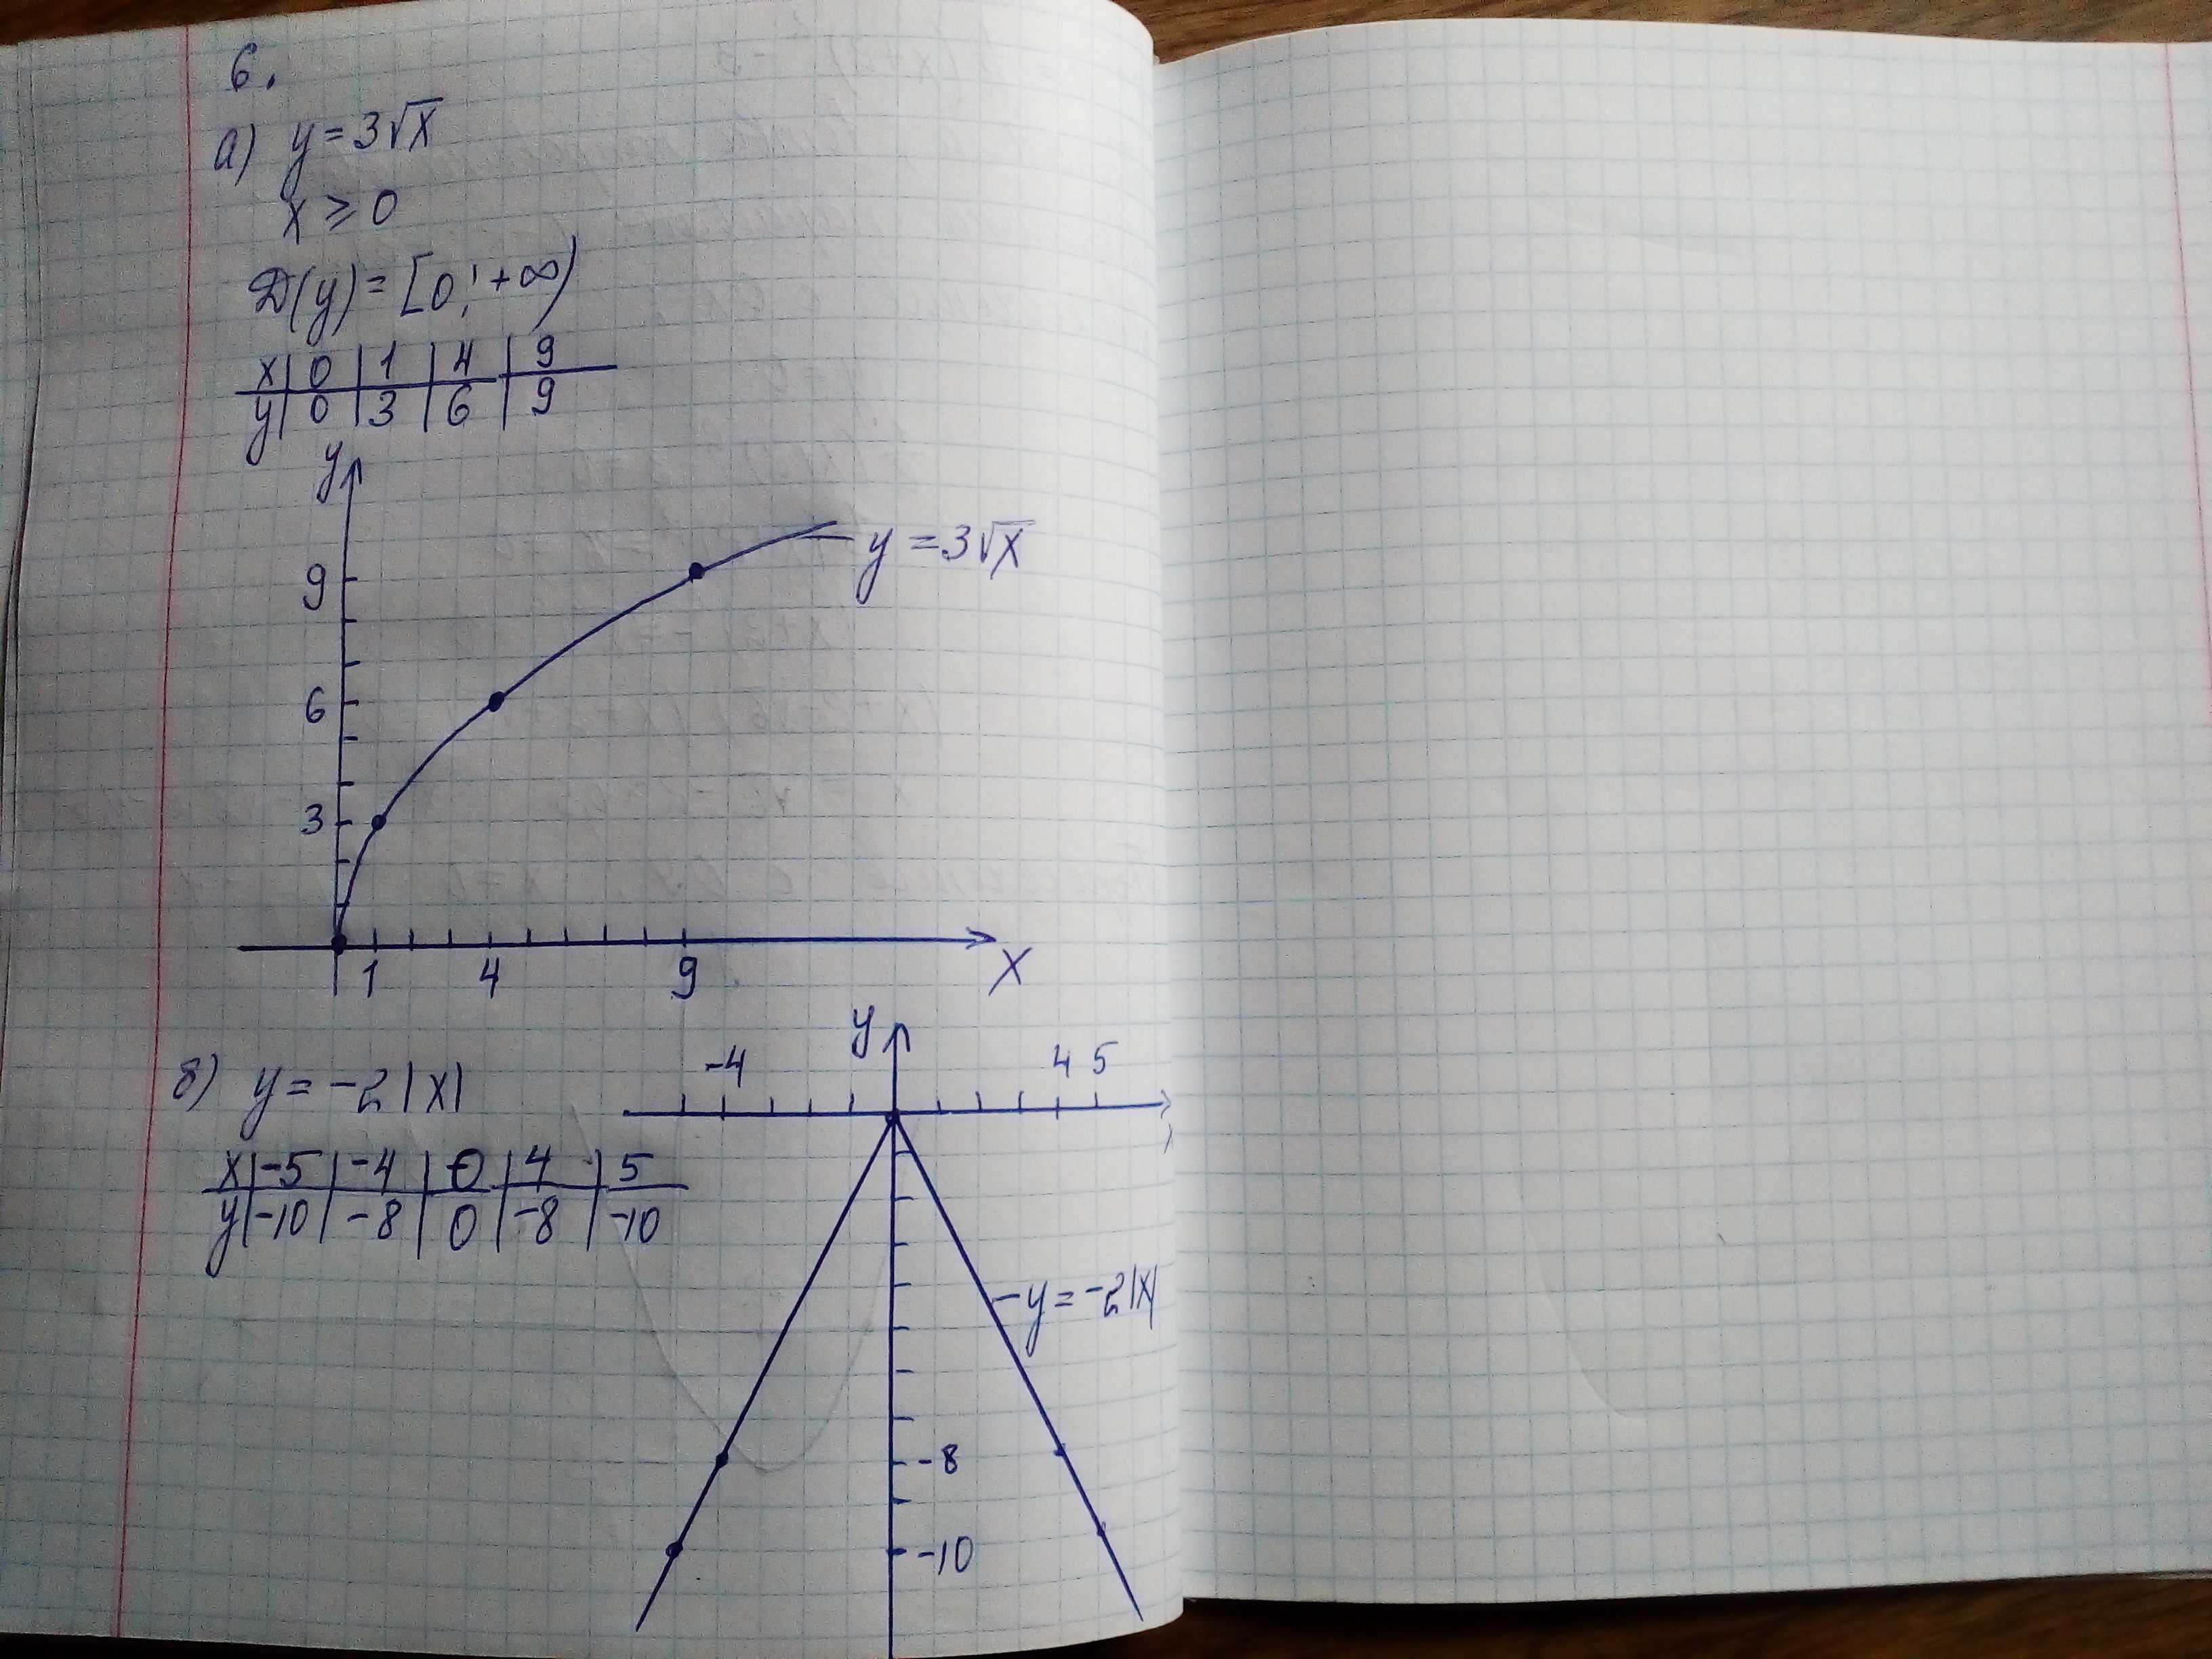 6.
а) y = 3√x
x ⩾ 0
D(y) = [0; +∞)
x | 0 | 1 | 4 | 9
y | 0 | 3 | 6 | 9
y
y = 3√x
9
6
3
1 4 9 x
y
-4 4 5
б) y = -2|x|
x | -5 | -4 | 0 | 4 | 5
y | -10 | -8 | 0 | -8 | -10
y = -2|x|
-8
-10